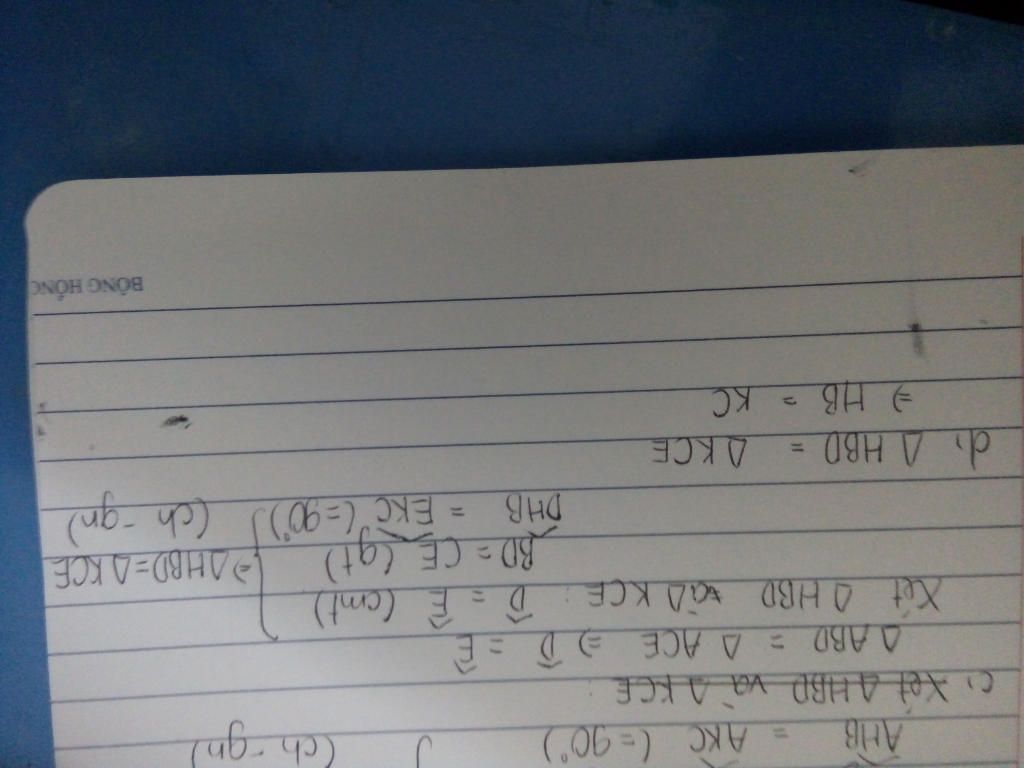 AHB = AKC (= 90°) } (ch - gn)
c, Xét Δ HBD và Δ KCE :
Δ ABD = Δ ACE ⇒ D̂ = Ê
Xét Δ HBD và Δ KCE : D̂ = Ê (cmt)
BD = CE (gt) } ⇒ Δ HBD = Δ KCE
DHB = EKC (= 90°) (ch - gn)
d, Δ HBD = Δ KCE
⇒ HB = KC
BÔNG HỒNG